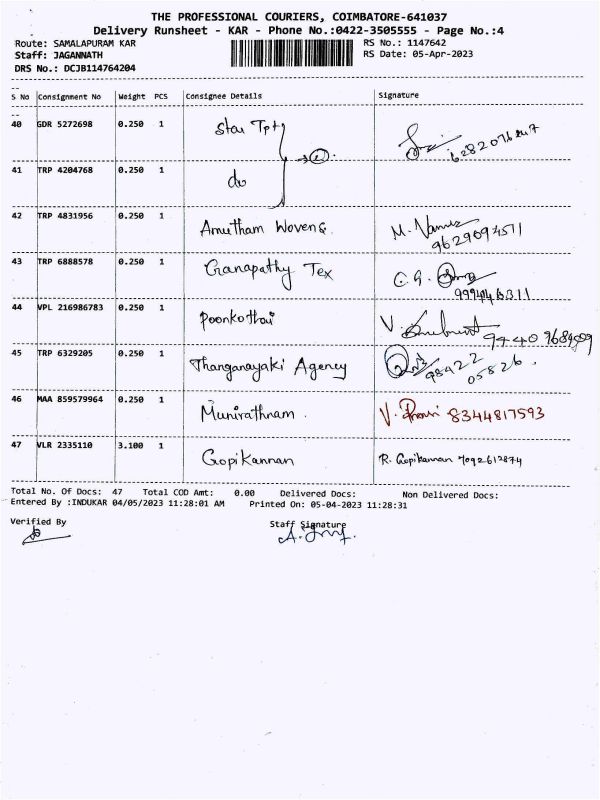 THE PROFESSIONAL COURIERS, COIMBATORE-641037
Delivery Runsheet - KAR - Phone No.:0422-3505555 - Page No.:4
Route: SAMALAPURAM KAR
RS No.: 1147642
Staff: JAGANNATH
RS Date: 05-Apr-2023
DRS No.: DCJB114764204
S No Consignment No Weight PCS Consignee Details Signature
40 GDR 5272698 0.250 1 Star Tpt 6282076247
41 TRP 4204768 0.250 1 do
42 TRP 4831956 0.250 1 Amutham Wovens M. 9629094511
43 TRP 6888578 0.250 1 Ganapathy Tex C.G.
44 VPL 216986783 0.250 1 Poonkothai V.
45 TRP 6329205 0.250 1 Thanganayaki Agency 98422 05826.
46 MAA 859579964 0.250 1 Munirathnam. V. 8344817593
47 VLR 2335110 3.100 1 Gopikannan R. Gopikannan 7092612874
Total No. Of Docs: 47 Total COD Amt: 0.00 Delivered Docs: Non Delivered Docs:
Entered By :INDUKAR 04/05/2023 11:28:01 AM Printed On: 05-04-2023 11:28:31
Verified By
Staff Signature